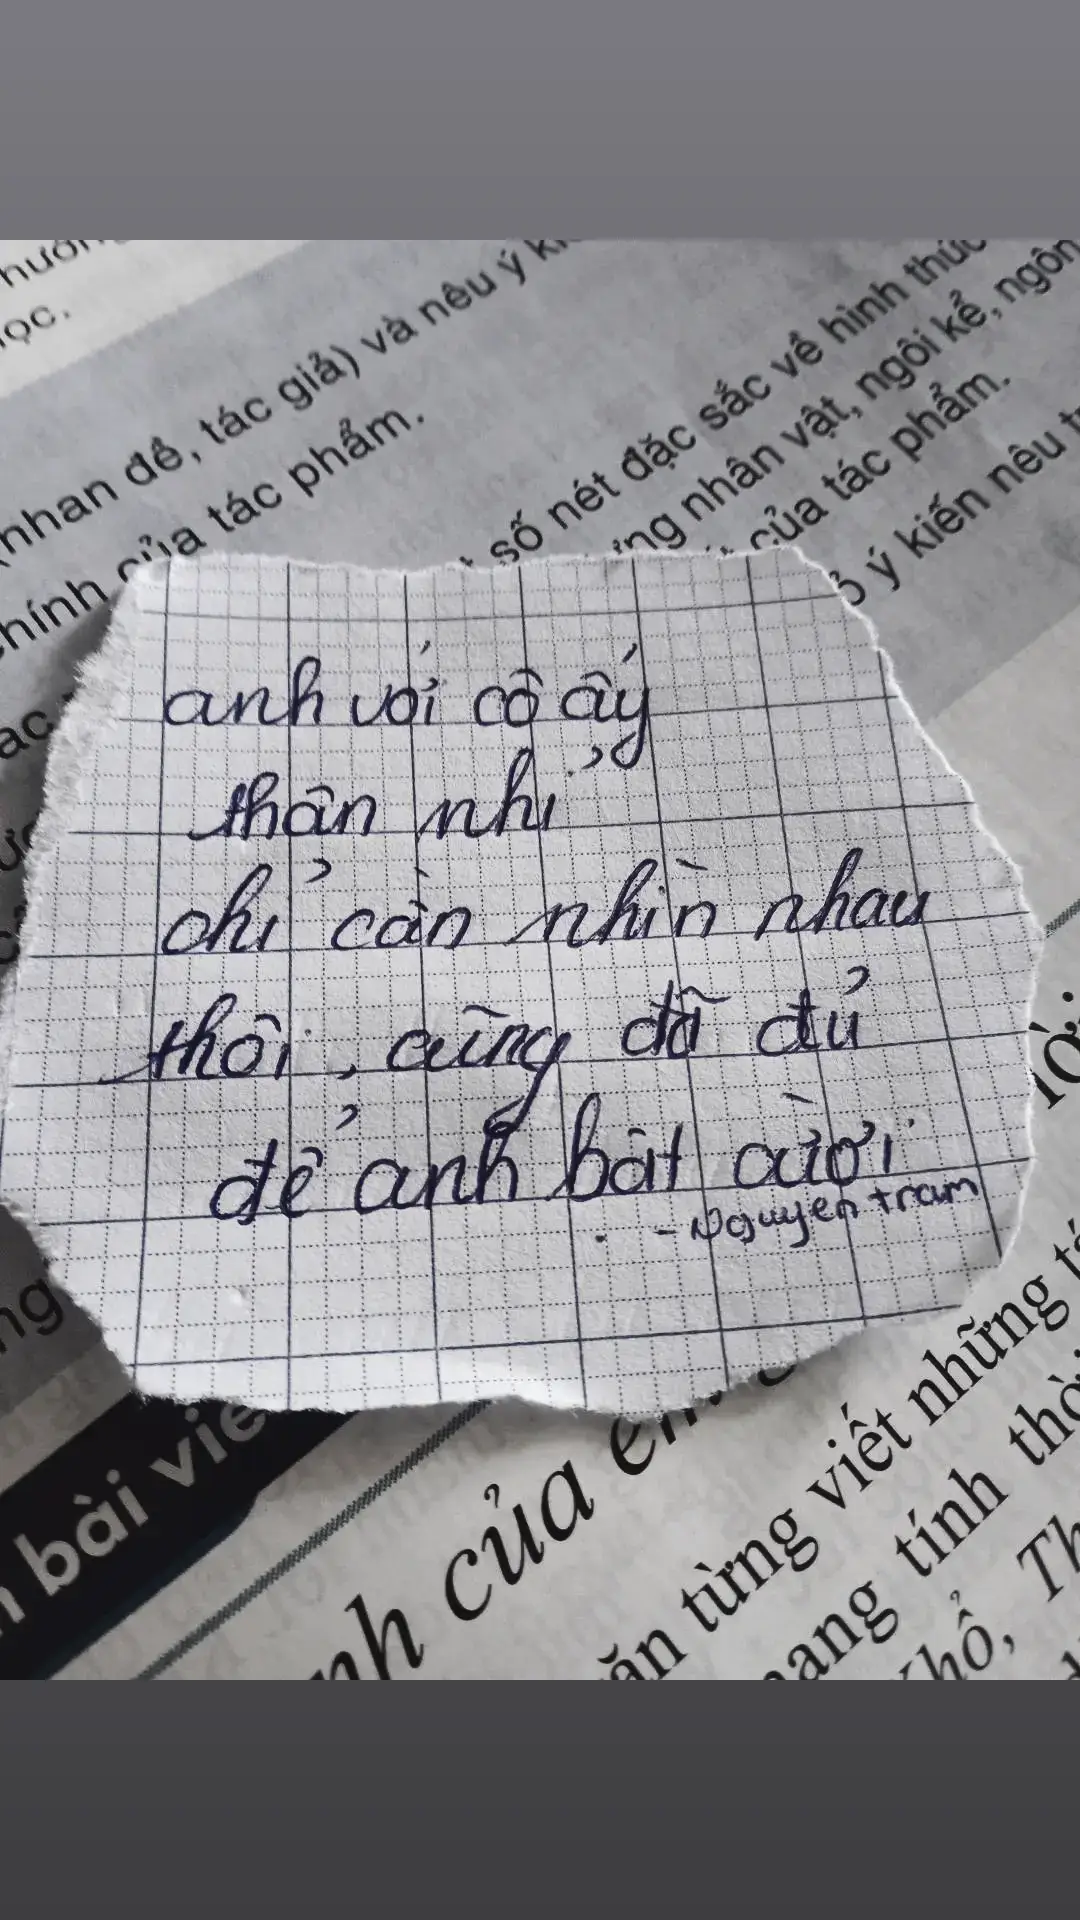 (nhan đề, tác giả) và nêu ý
chính của tác phẩm.
số nét đặc sắc về hình thức
nhân vật, ngôi kể, ngôn
của tác phẩm.
ý kiến nêu
anh với cô ấy
thân nhỉ
chỉ cần nhìn nhau
thôi, cũng đã đủ
để anh bật cười
- Nguyen tram
bài
của em
từng viết những
mang tính thời
Khổ, Th